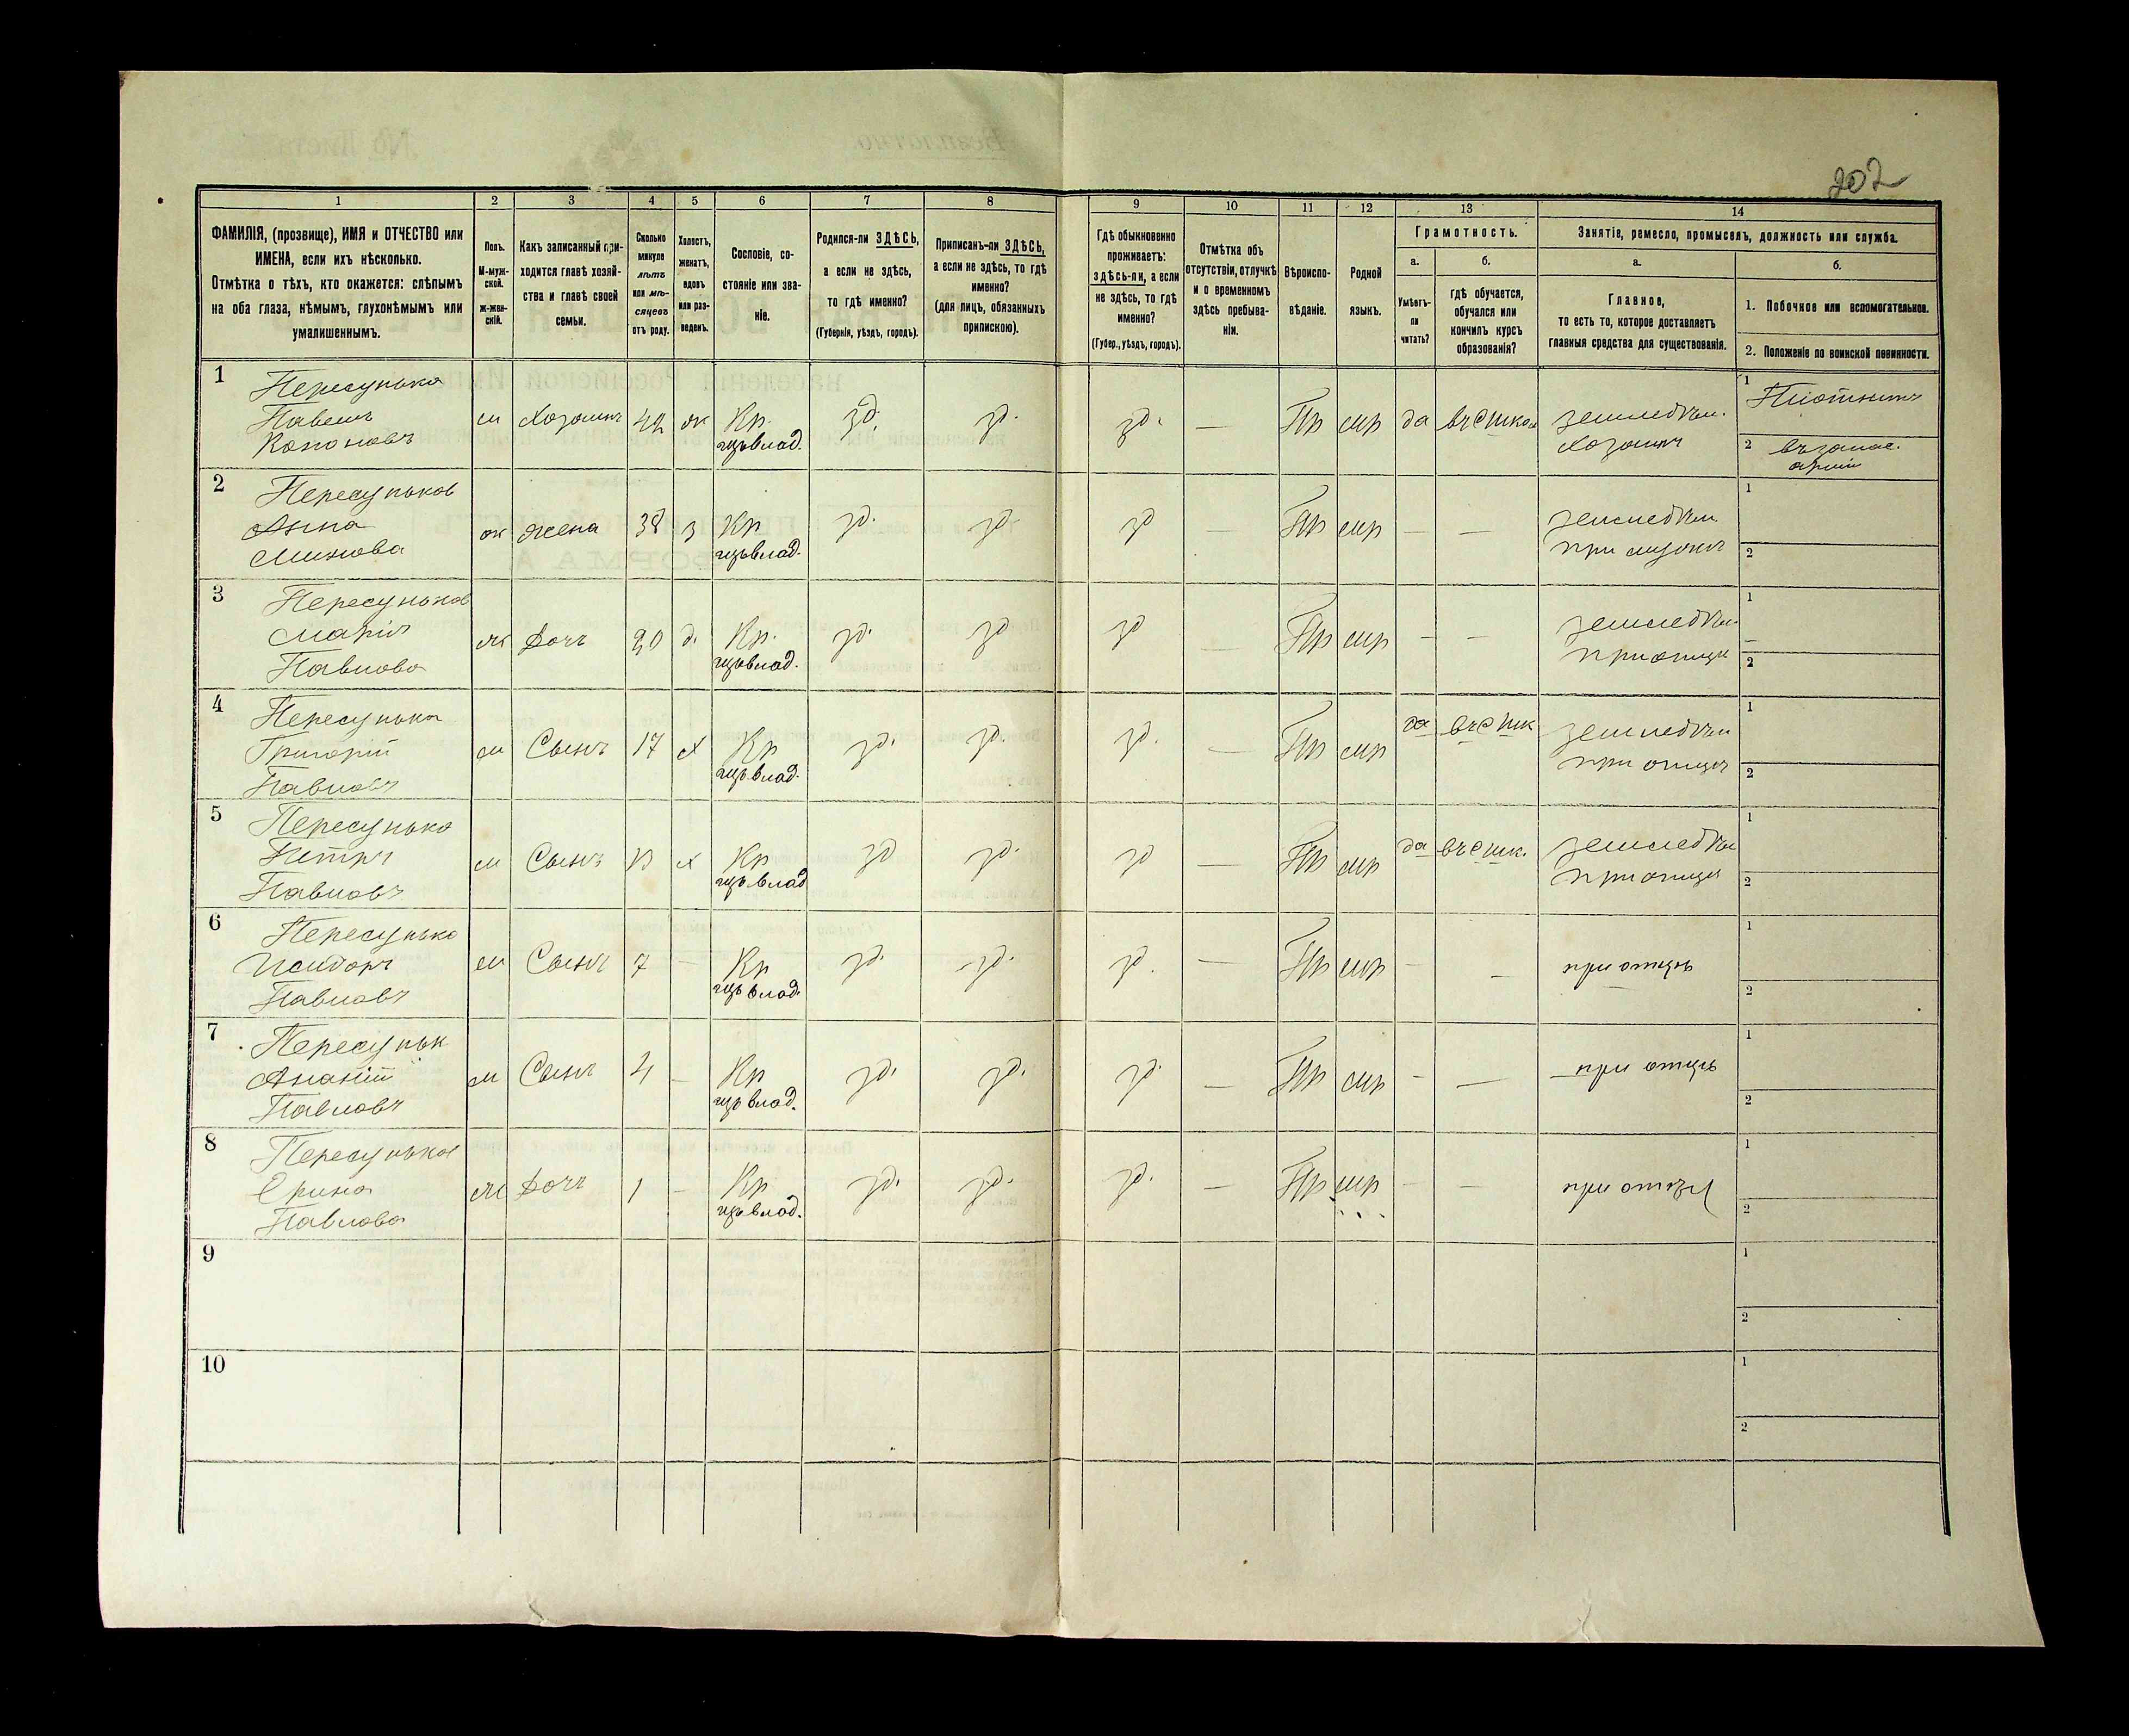 202
1 2 3 4 5 6 7 8 9 10 11 12 13 14
ФАМИЛІЯ, (прозвище), ИМЯ и ОТЧЕСТВО или
ИМЕНА, если ихъ нѣсколько.
Отмѣтка о тѣхъ, кто окажется: слѣпымъ
на оба глаза, нѣмымъ, глухонѣмымъ или
умалишеннымъ.
Полъ.
М-муж-
ской.
Ж-жен-
скій.
Какъ записанный при-
ходится главѣ хозяй-
ства и главѣ своей
семьи.
Сколько
минуло
лѣтъ
или мѣ-
сяцевъ
отъ роду.
Холостъ,
женатъ,
вдовъ
или раз-
веденъ.
Сословіе, со-
стояніе или зва-
ніе.
Родился-ли ЗДѢСЬ,
а если не здѣсь,
то гдѣ именно?
(Губернія, уѣздъ, городъ).
Приписанъ-ли ЗДѢСЬ,
а если не здѣсь, то гдѣ
именно?
(для лицъ, обязанныхъ
припискою).
Гдѣ обыкновенно
проживаетъ:
здѣсь-ли, а если
не здѣсь, то гдѣ
именно?
(Губер., уѣздъ, городъ).
Отмѣтка объ
отсутствіи, отлучкѣ
и о временномъ
здѣсь пребыва-
ніи.
Вѣроиспо-
вѣданіе.
Родной
языкъ.
Грамотность.
а.
Умѣетъ-
ли
читать?
б.
гдѣ обучается,
обучался или
кончилъ курсъ
образованія?
Занятіе, ремесло, промыселъ, должность или служба.
а.
Главное,
то есть то, которое доставляетъ
главныя средства для существованія.
б.
1. Побочное или вспомогательное.
2. Положеніе по воинской повинности.
1 Пересунько
Павелъ
Кононовъ
м Хозяинъ 42 ж Кр. зд. зд. зд. — Пр мр да въ с школ земледѣл. 1 Плотникъ
хозяинъ 2 въ запас.
арміи
2 Пересуньков
Анна
жена 38 з Кр зд. зд зд — Пр мр — — земледѣл 1
2
3 Пересуньков
Марія
Павлова
ж дочь 20 д. Кр. зд. зд зд — Пр мр — — земледѣл. 1
при отцѣ 2
4 Пересунько
Григорій
Павловъ
м Сынъ 17 х Кр зд. зд. зд. — Пр мр да въ с шк земледѣл 1
при отцѣ 2
5 Пересунько
Петръ
Павловъ
м Сынъ х Кр зд зд. зд — Пр мр да въ с шк. земледѣл 1
при отцѣ 2
6 Пересунько
Исидоръ
Павловъ
м Сынъ 7 — Кр зд. зд. зд. — Пр мр — — при отцѣ 1
2
7 Пересуньк
Ананій
Павловъ
м Сынъ 4 — Кр зд. зд. зд. — Пр мр — — при отцѣ 1
2
8 Пересуньков
Ерина
Павлова
ж дочь 1 — Кр зд. зд. зд. — Пр мр — — при отцѣ 1
2
9 1
2
10 1
2